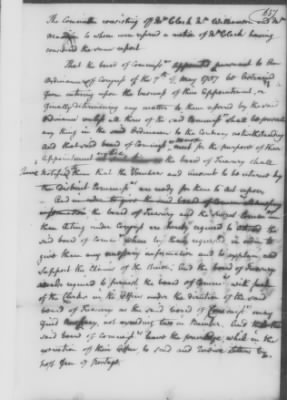 657
The Committee consisting of Mr Clark Mr Williamson and Mr
to whom were referred a motion of Mr Clark having
considered the same report
That the board of Commissrs appointed pursuant to the
Ordinance of Congress of the 7th of May 1787 be
from entering upon the business of their Appointment, or
finally determining any matter to them referred by the said
Ordinance unless all three of the said Commissrs shall be present
any thing in the said Ordinance to the contrary notwithstanding
And that said board of Commissrs meet for the purposes of their
Appointment the board of Treasury shall
notified them that the Vouchers and Accounts to be returned by
the District Commissrs are ready for them to act upon
And in order to give the said board of
information the board of Treasury and the
then sitting under Congress are hereby required to attend the
said board of Commrs when by them requested in order to
give them any information and to explain and
support the Claims of the Union. And the board of Treasury
required to furnish the board of Commrs with
of the Clerks in the Offices under the direction of the said
board of Treasury as the said board of Commissrs may
find necessary, not exceeding two in Number. And that the
said board of Commissrs have the privilege while in the
execution of their Office, to send and receive letters by
post free of Postage.